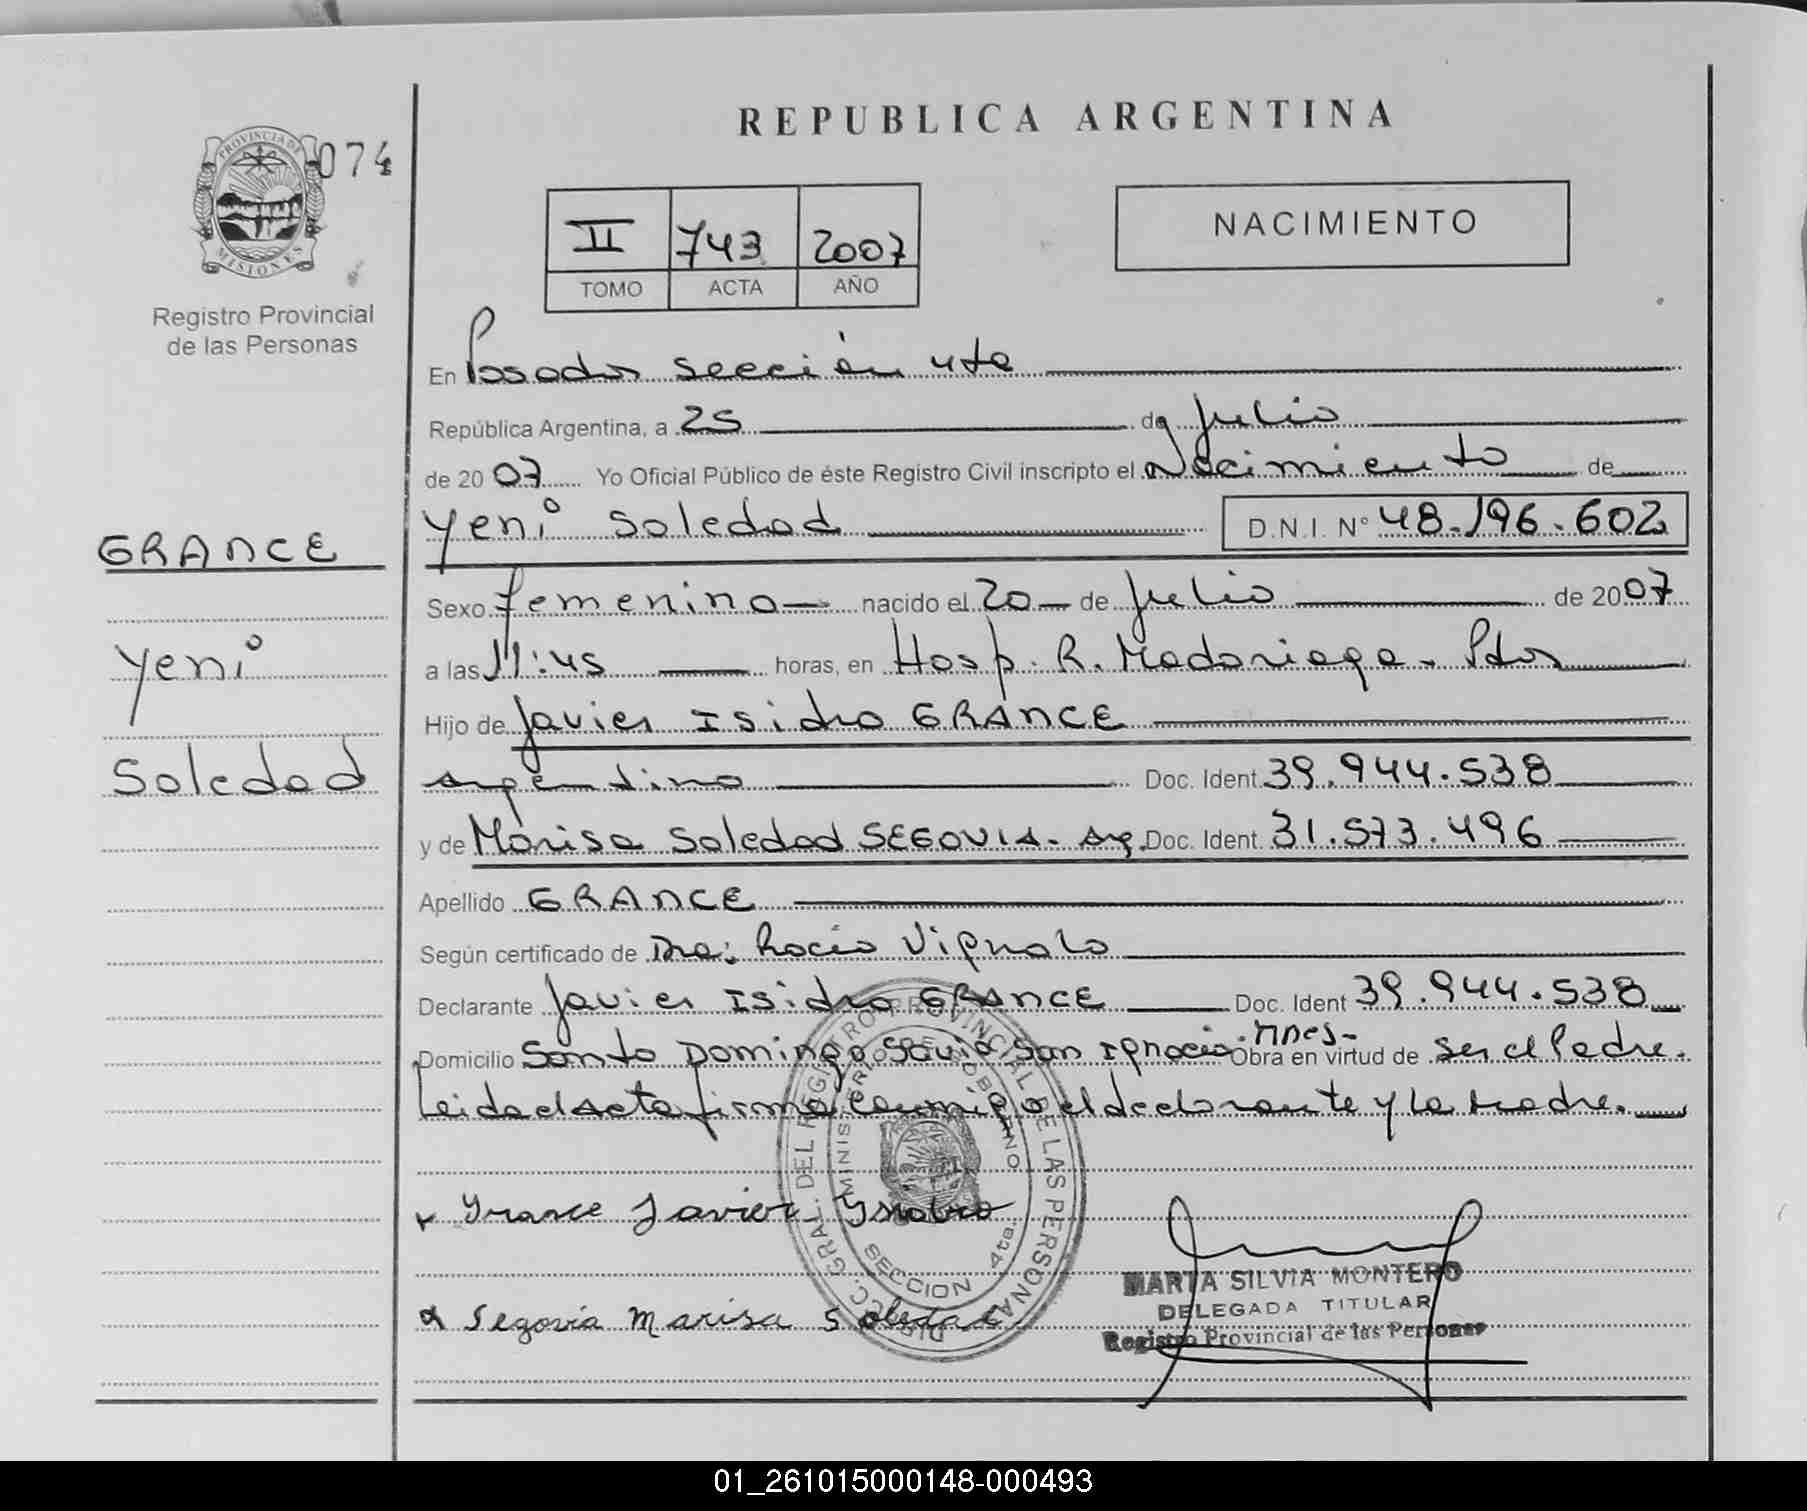 REPUBLICA ARGENTINA
PROVINCIA DE
MISIONES
074
Registro Provincial
de las Personas
II 743 2007
TOMO ACTA AÑO
NACIMIENTO
En Posadas sección 4ta
República Argentina, a 25 de Julio
de 2007 Yo Oficial Público de éste Registro Civil inscripto el Nacimiento de
GRANCE
Yeni Soledad D.N.I. N° 48.196.602
Sexo femenino nacido el 20 de Julio de 2007
Yeni
a las 11:45 horas, en Hosp. R. Madariaga. Pdas
Hijo de Javier Isidro GRANCE
Soledad
argentino Doc. Ident. 39.944.538
y de Marisa Soledad SEGOVIA. Arg. Doc. Ident. 31.573.496
Apellido GRANCE
Según certificado de Dra: Rocío Vignolo
Declarante Javier Isidro GRANCE Doc. Ident 39.944.538
Domicilio Santo Domingo Savio San Ignacio. Mnes- Obra en virtud de ser el Padre.
Leida el acta firma conmigo el declarante y la Madre.
DIRECC. GRAL. DEL REGISTRO PROVINCIAL DE LAS PERSONAS
MINISTERIO DE GOBIERNO
SECCION 4ta.
x Grance Javier Ysidro
x Segovia Marisa Soledad
MARTA SILVIA MONTERO
DELEGADA TITULAR
Registro Provincial de las Personas
01_261015000148-000493